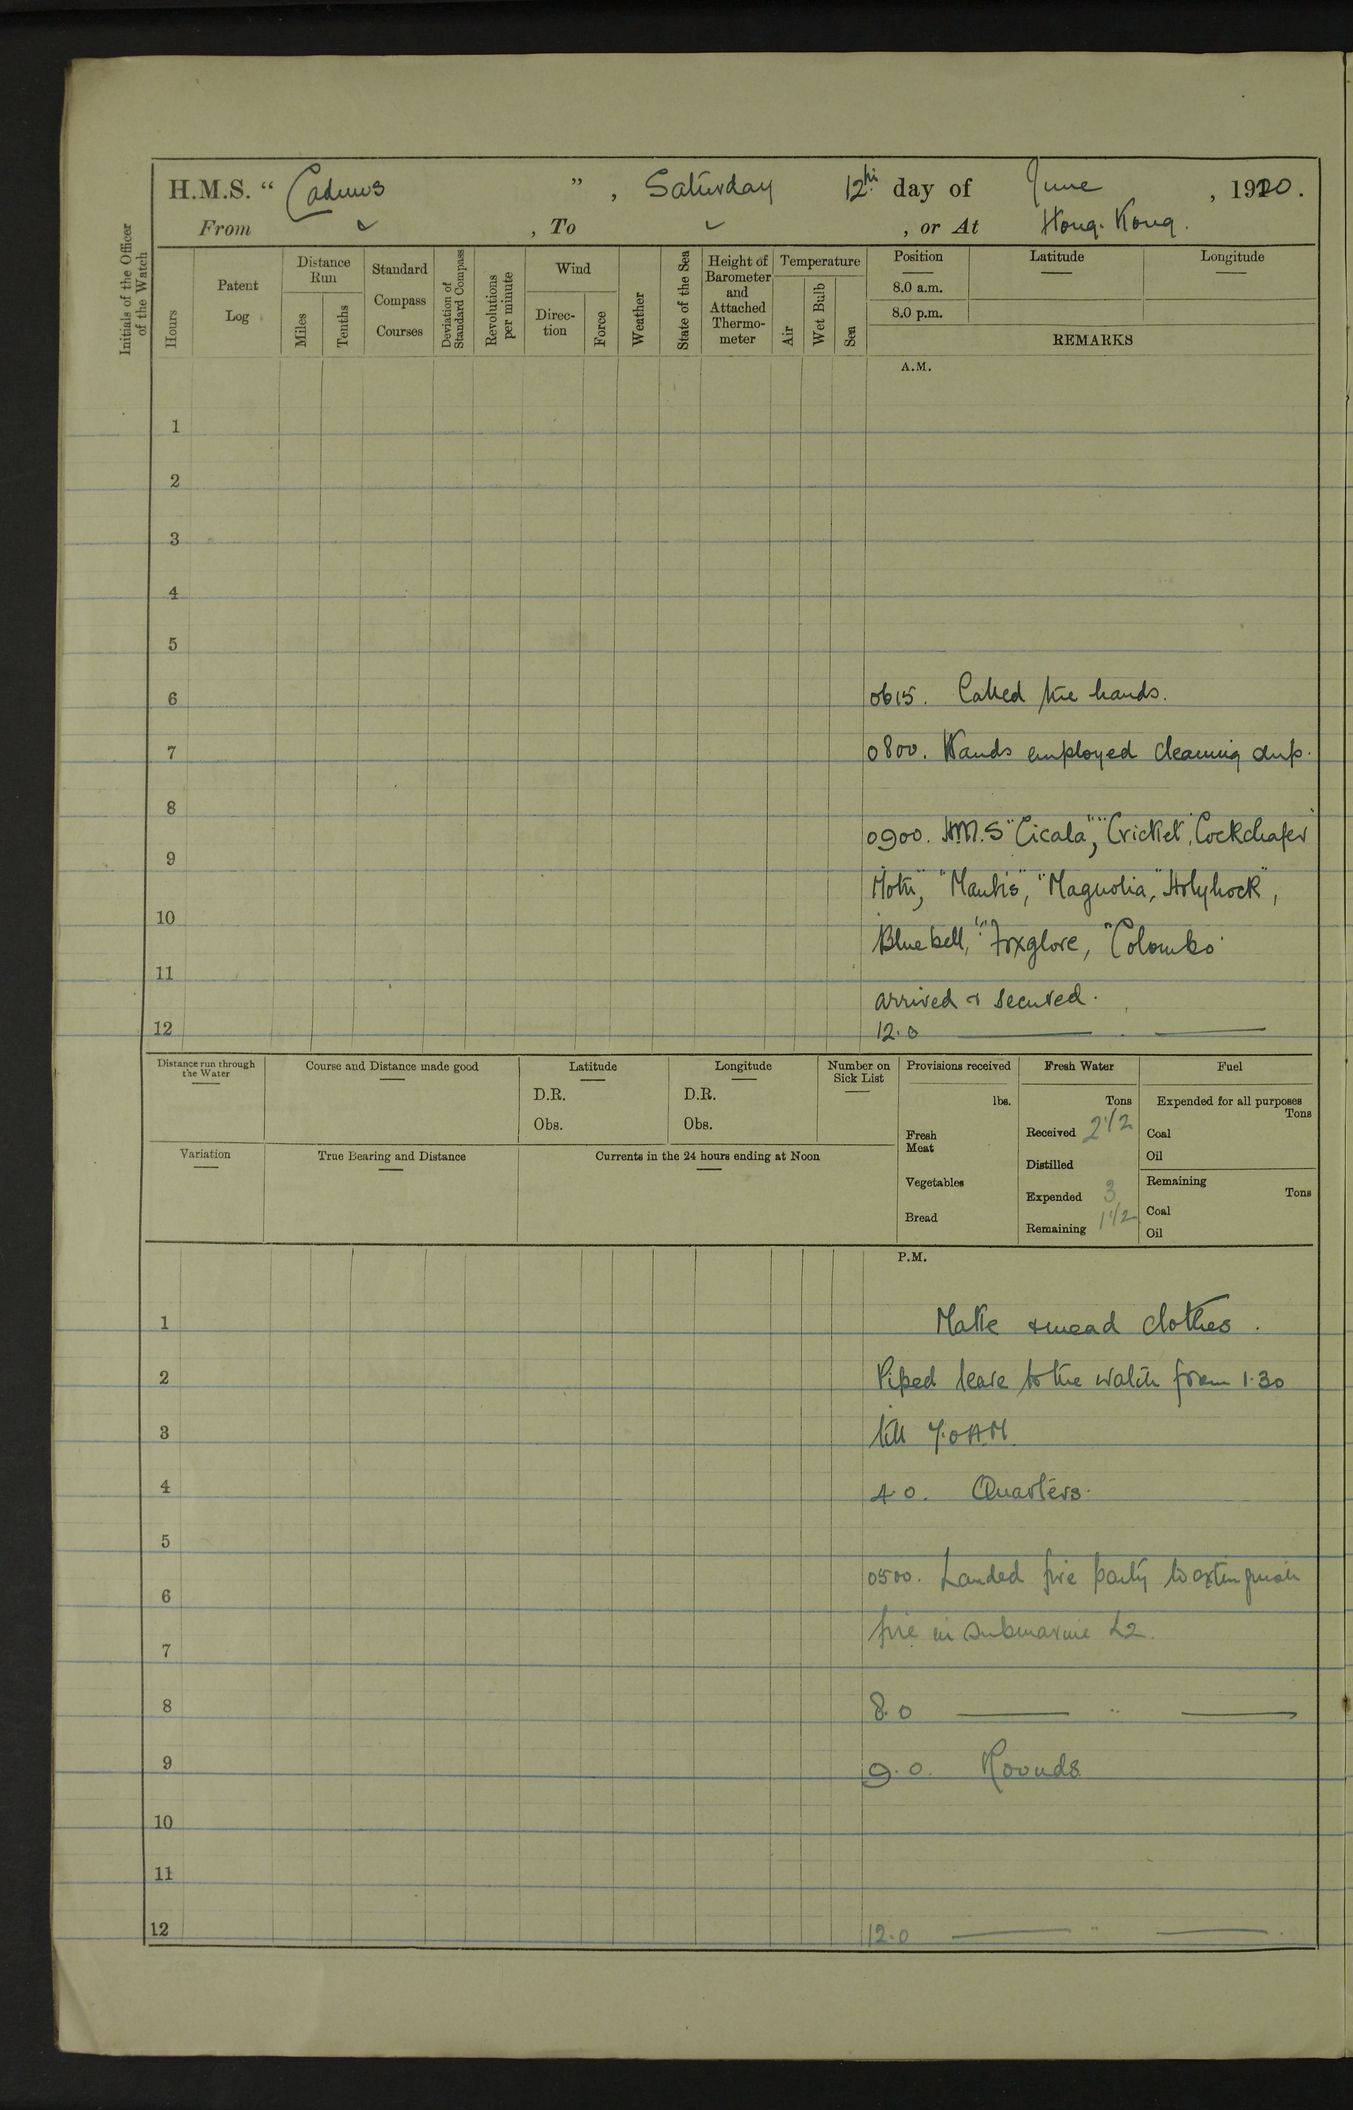 H.M.S. “ Cadmus ” , Saturday 12th day of June , 1920 .
From , To , or At Hong. Kong.
Initials of the Officer of the Watch
Hours
Patent Log
Distance Run
Miles
Tenths
Standard Compass Courses
Deviation of Standard Compass
Revolutions per minute
Wind
Direction
Force
Weather
State of the Sea
Height of Barometer and Attached Thermometer
Temperature
Air
Wet Bulb
Sea
Position
8.0 a.m.
8.0 p.m.
Latitude
Longitude
REMARKS
A.M.
1
2
3
4
5
6 0615. Called the hands.
7 0800. Hands employed cleaning ship.
8
0900. H.M.S "Cicala", "Cricket", Cockchafer"
9
Moth", "Mantis", "Magnolia," Holyhock",
10
Bluebell," "Foxglove, "Colombo"
11
arrived & secured.
12 12.0
Distance run through the Water
Course and Distance made good
Latitude
D.R.
Obs.
Longitude
D.R.
Obs.
Number on Sick List
Provisions received
lbs.
Fresh Meat
Vegetables
Bread
Fresh Water
Tons
Received 2 1/2
Distilled
Expended 3
Remaining 1 1/2
Fuel
Expended for all purposes
Tons
Coal
Oil
Remaining
Tons
Coal
Oil
Variation
True Bearing and Distance
Currents in the 24 hours ending at Noon
P.M.
1 Make & mend clothes.
2 Piped leave to the watch from 1.30
3 till 7.0 AM.
4 4.0. Quarters.
5
0500. Landed fire party to extinguish
6
fire in submarine L2.
7
8 8.0
9 9.0. Rounds
10
11
12 12.0